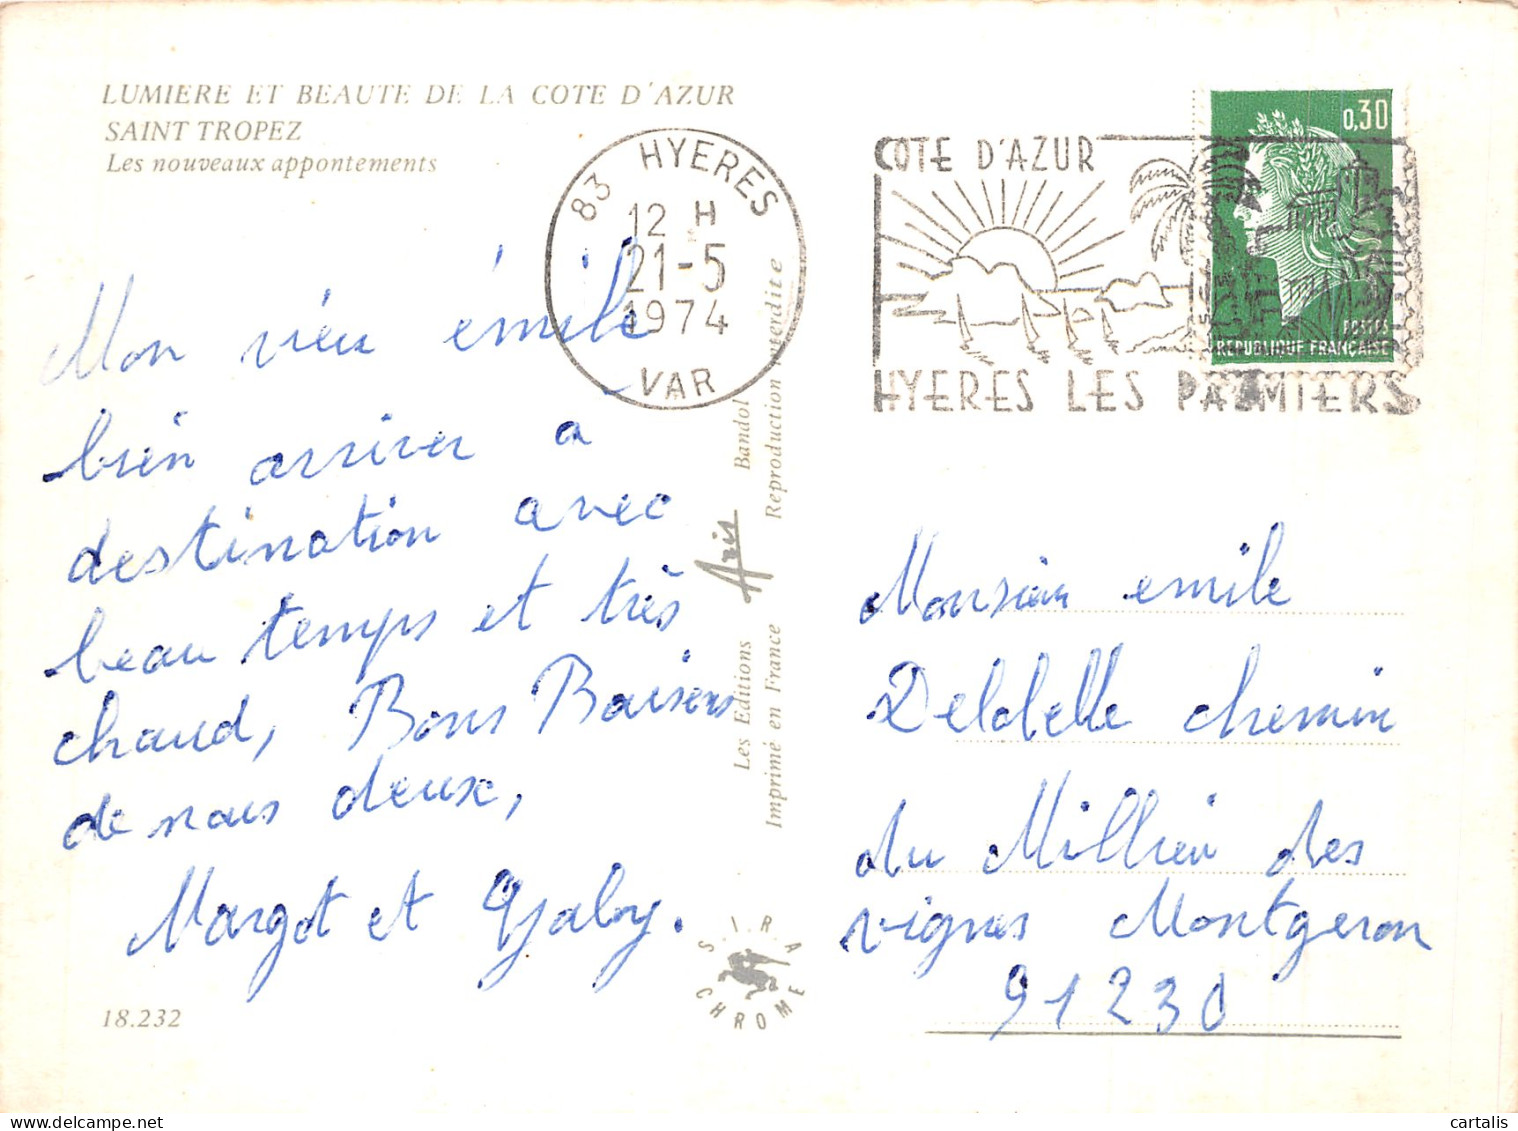 LUMIERE ET BEAUTE DE LA COTE D'AZUR
SAINT TROPEZ
Les nouveaux appontements
83 HYERES
12 H
21-5
1974
VAR
COTE D'AZUR
HYERES LES PALMIERS
0,30
POSTES
REPUBLIQUE FRANÇAISE
Mon vieu émile
bien arriver a
destination avec
beau temps et très
chaud, Bons Baisers
de nous deux,
Margot et Gaby.
18.232
Les Editions Aris Bandol
Imprimé en France Reproduction interdite
S.I.R.A
CHROME
Monsieur emile
Deldelle chemin
du Millieu des
vignes Montgeron
91230
cartalis